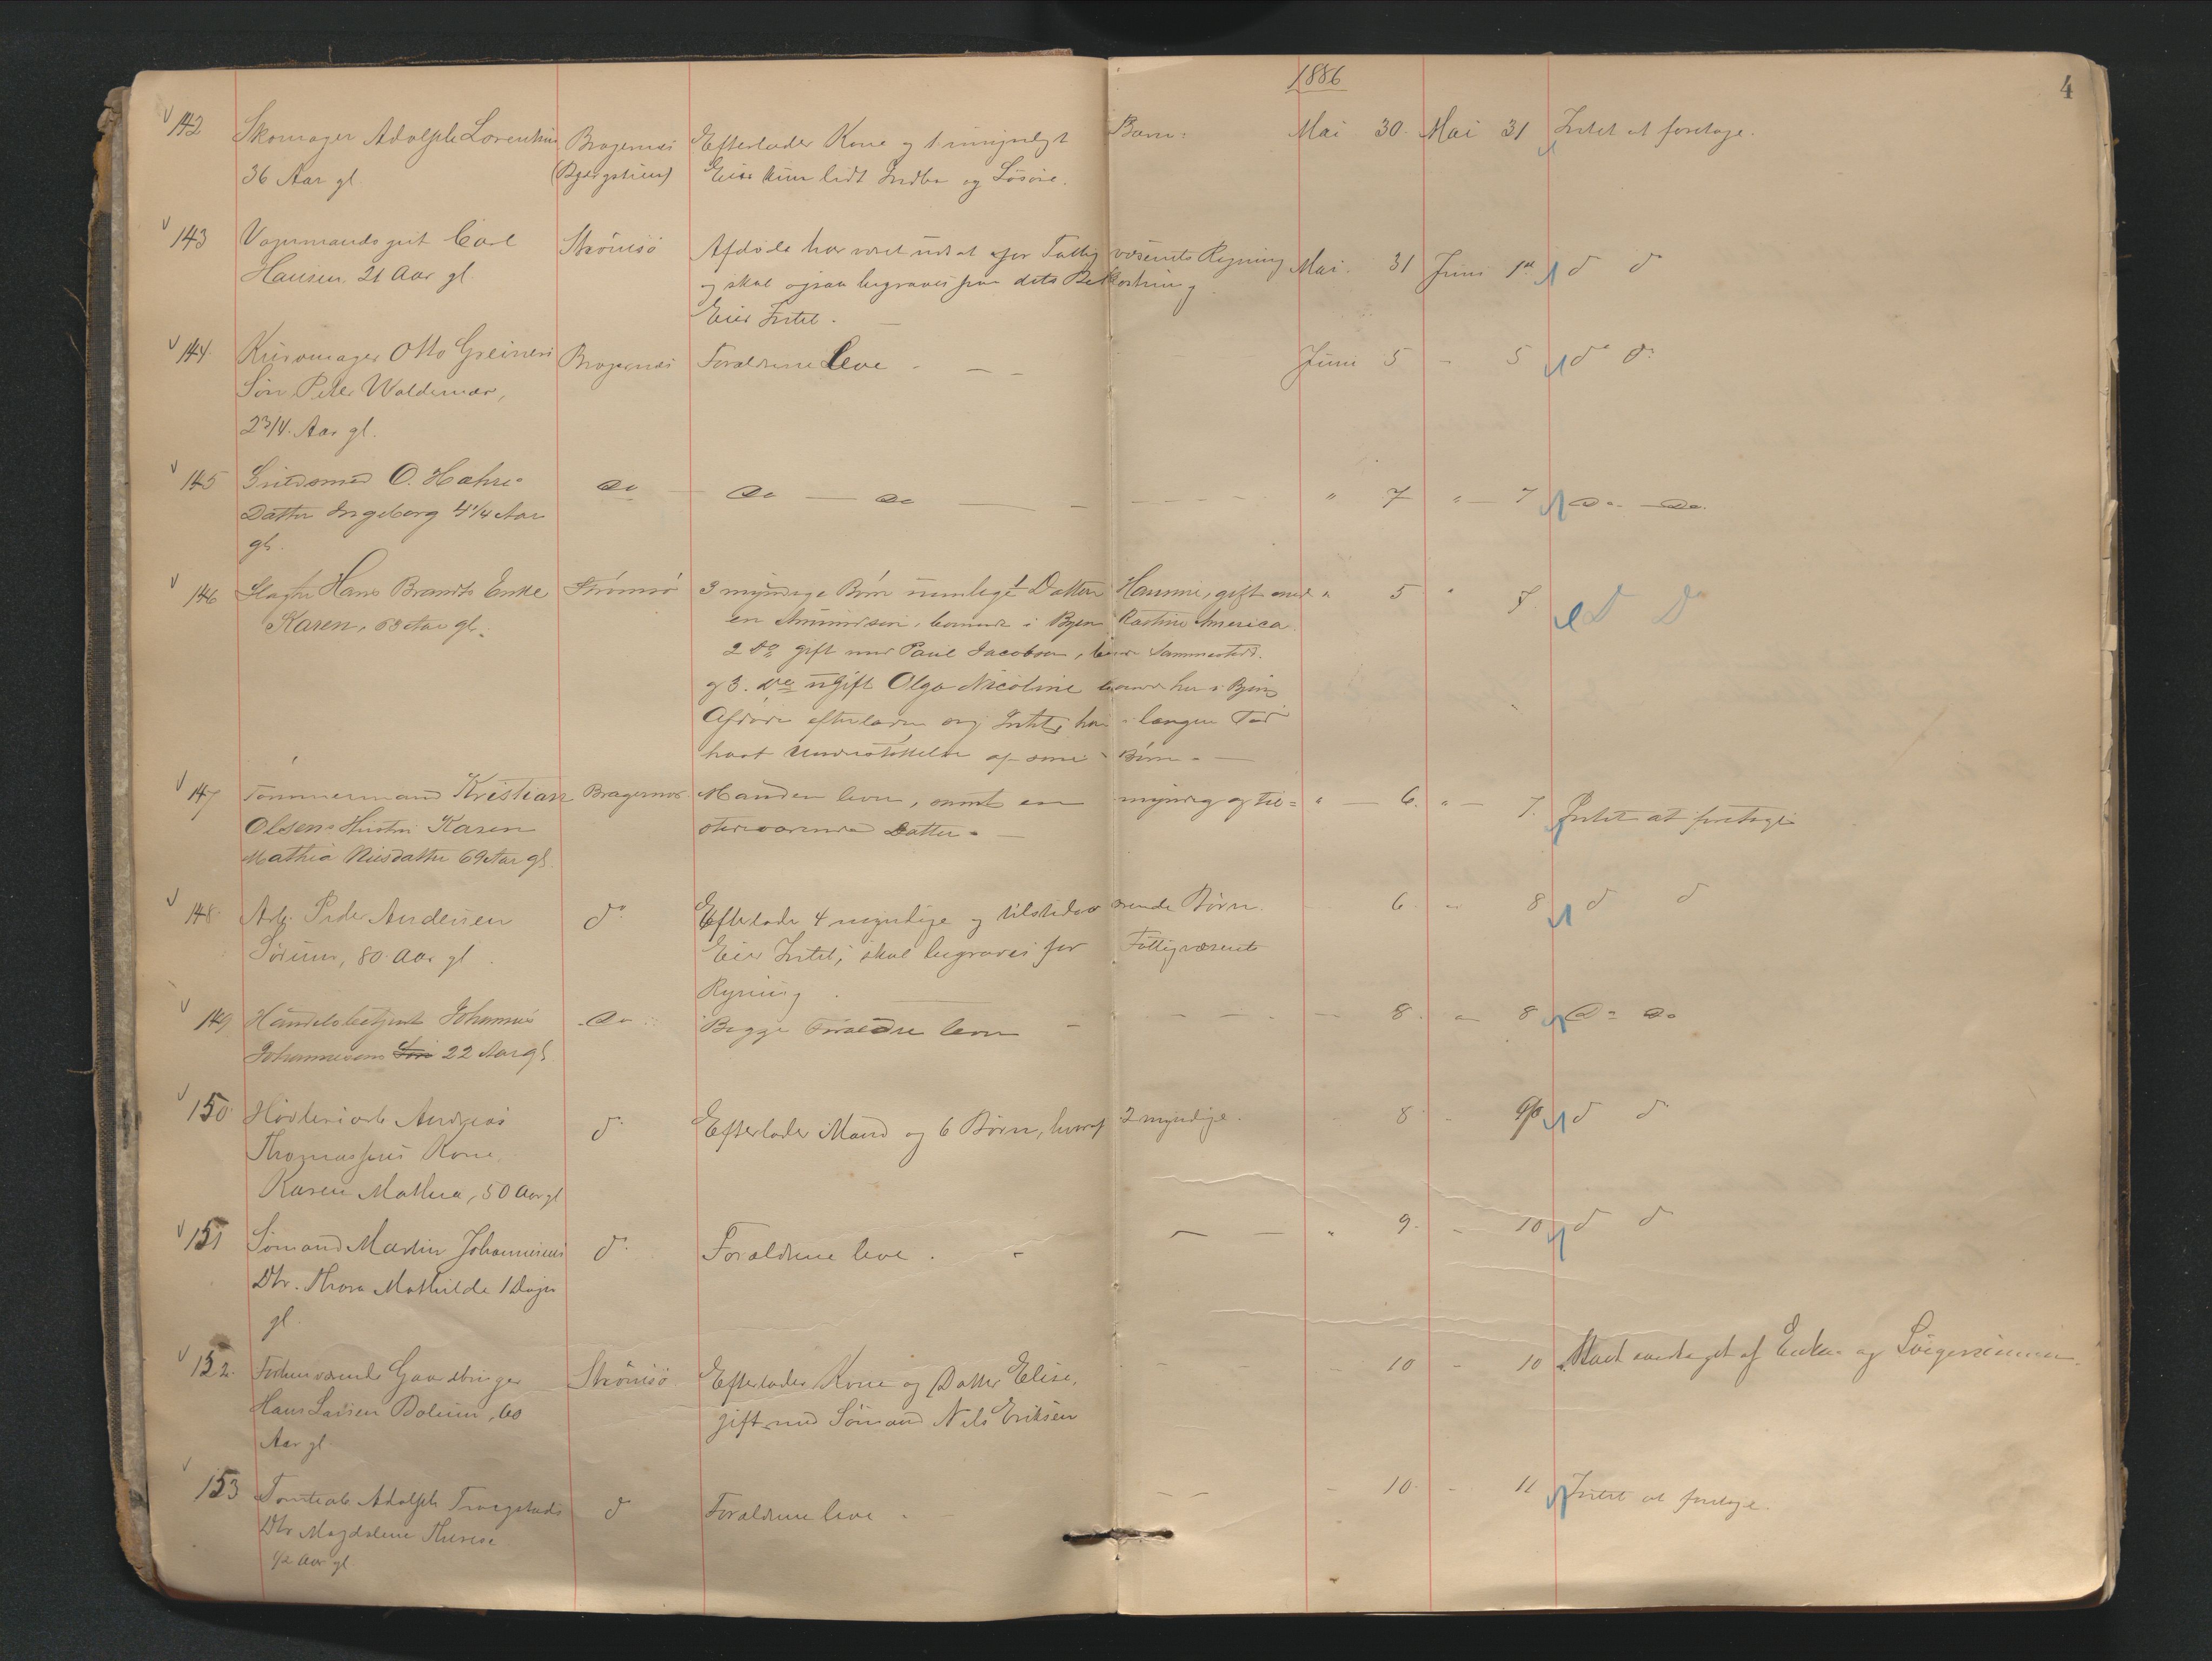 1886
4
142 Skomager Adolph Lorentsen Bragernæs Efterlader Kone og 1 umyndigt Barn. Mai 30. Mai 31 Intet at foretage.
36 Aar gl. Eier kun lidt Indbo og Løsøre.
143 Vognmandsgut Carl Strömsö Afdøde har været udsat for Fattigvæsenets Regning Mai 31 Juni 1st do do
Hansen, 21 Aar gl. og skal ogsaa begraves paa dets Bekostning
Eier Intet.
144. Otto Greiners Bragernæs Forældrene leve Juni 5 - 5 do do
Søn Peter Waldemar,
2 3/4 Aar gl.
145 O. Hahres do do do " 7 " 7 do do
Datter Ingeborg 4 1/4 Aar
gl.
146 Slagter Hans Brandts Enke Strömsö 3 myndige Børn nemlig 1 Datter Hanna, gift med " 5 " 8 D D
Karen, 63 Aar gl. en Amundsen, boende i Byen America
2 do gift med Paul Jacobsen, boende Sammesteds.
og 3. do ugift Olga Nicoline boende her i Byen
Afdøde efterlader sig Intet, har i længere Tid
havt Understøttelse af sine Børn
147 Tömmermand Kristian Bragernæs Manden lever, samt en myndig og til= " 6. " 7. Intet at foretage
Olsens Hustru Karen stedeværende Datter
Mathia Nilsdatter 69 Aar gl.
148 Arb. Peder Andersen do Efterlader 4 myndige og tilstedeværende Børn. 6. 8 do do
Sørum, 80 Aar gl. Eier Intet; skal begraves for Fattigvæsenets
Regning
149 Handelsbetjent Johannes do Begge Forældre lever 8. 8 do do
Johannesens 22 Aar gl.
150 Høvleriarb Andreas do Efterlader Mand og 6 Børn, hvoraf 2 myndige. 8 do do
Thomassens Kone
Karen Mathea, 50 Aar gl
151 Sømand Martin Johannesens do Forældrene leve. " 9. 10 do do
Dtr. Thora Mathilde 1 Dage
gl.
152. Forhenværende Gaardbruger Strömsö Efterlader Kone og Datter Elise, 10 - 10 Boet overtaget af Enken og Svigersønnen.
Hans Larsen, 60 gift med Sömand Nils Eriksen
Aar gl
153 Tomtearb Adolph Trøgstads do Forældrene leve. 10. 11 Intet at foretage.
Dtr Magdalene Therese
1/2 Aar gl.